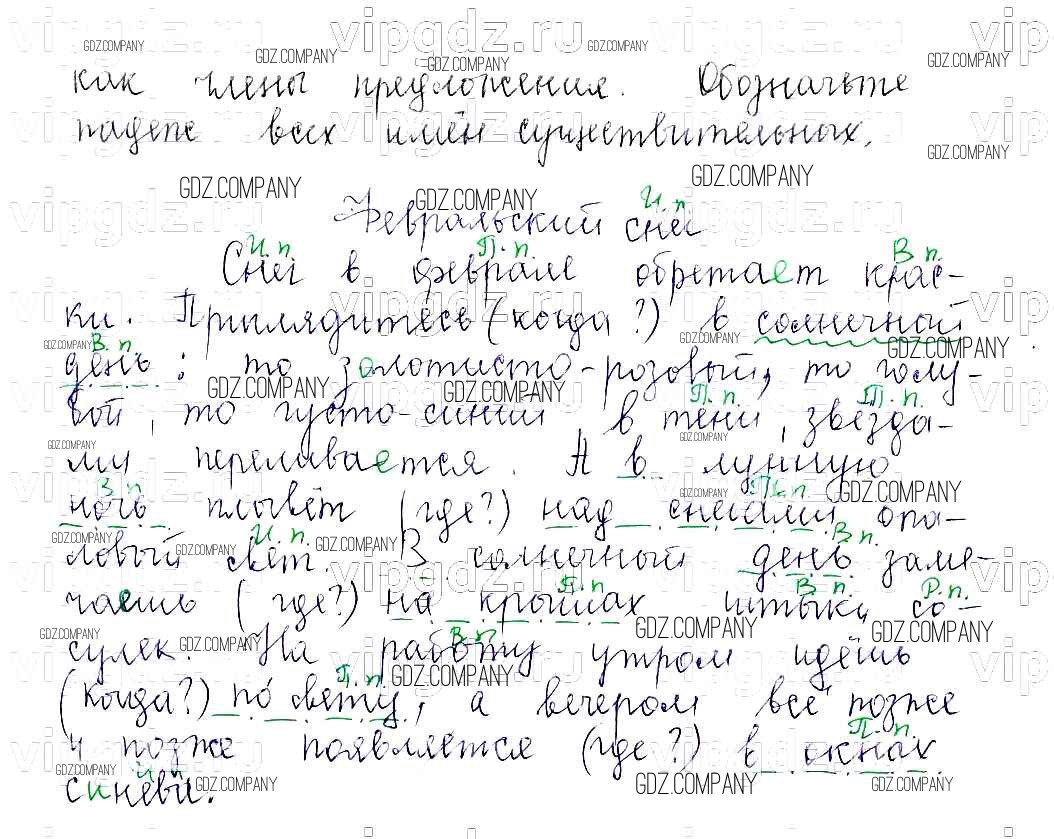 как члены предложения. Обозначьте
падеж всех имён существительных.
Февральский снег
Снег в феврале обретает крас-
ки. Приглядитесь (когда?) в солнечный
день: то золотисто-розовый, то голу-
бой, то густо-синий в тени, звёзда-
ми переливается. А в лунную
ночь плывёт (где?) над снегами опа-
ловый свет. В солнечный день заме-
чаешь (где?) на крышах штыки со-
сулек. На работу утром идёшь
(когда?) по свету, а вечером всё позже
и позже появляется (где?) в окнах
синевы.